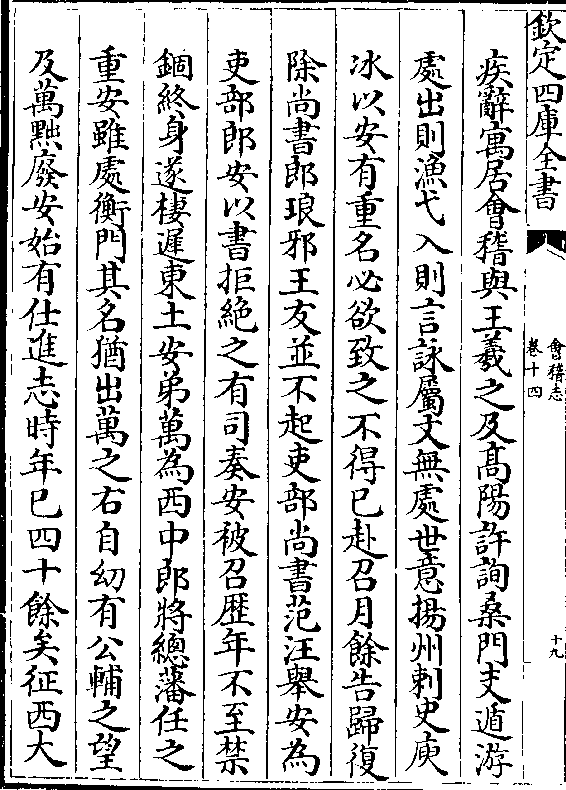 欽定四庫全書
會稽志
卷十四
十九
疾辭寓居會稽與王羲之及髙陽許詢桑門支遁游
處出則漁弋入則言詠屬文無處世意揚州刺史庾
冰以安有重名必欲致之不得已赴召月餘告歸復
除尚書郎琅邪王友並不起吏部尚書范汪舉安為
吏部郎安以書拒絶之有司奏安被召歴年不至禁
錮終身遂棲遲東土安弟萬為西中郎將總藩任之
重安雖處衡門其名猶出萬之右自幼有公輔之望
及萬黜廢安始有仕進志時年已四十餘矣征西大